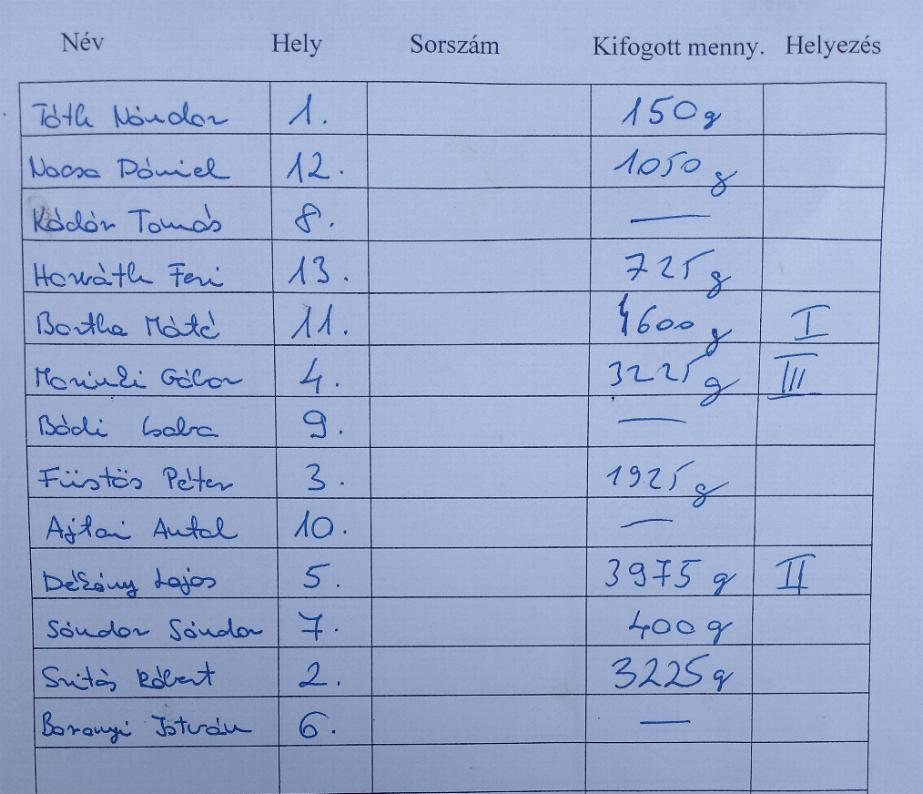 Név Hely Sorszám Kifogott menny. Helyezés
Tóth Nándor 1. 150g
Nacsa Dániel 12. 1050 g
Kádár Tamás 8. —
Horváth Feri 13. 725g
Bartha Máté 11. 4600 g I
Gábor 4. 3225 g III
Bódi Csaba 9. —
Füstös Péter 3. 1925 g
Ajtai Antal 10. —
Dékány Lajos 5. 3975 g II
Sándor Sándor 7. 400 g
Szitás Róbert 2. 3225 g
Baranyi István 6. —